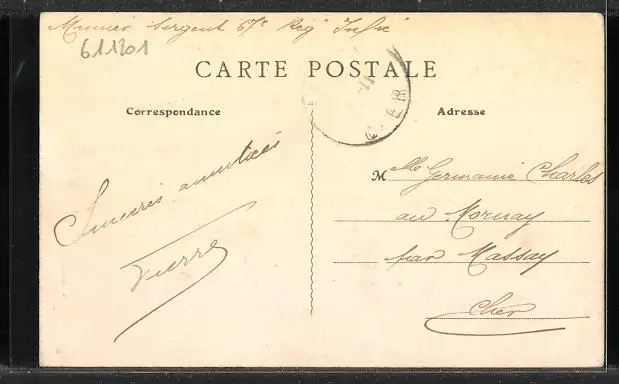 Munier Sergent 67e Reg Infie
611201
CARTE POSTALE
Correspondance
Adresse
Sincères amitiés
Pierre
Melle Germaine Charles
au Mornay
par Massay
Cher